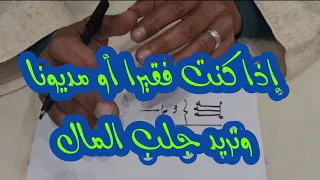 إذا كنت فقيرا أو مديونا
وتريد جلب المال